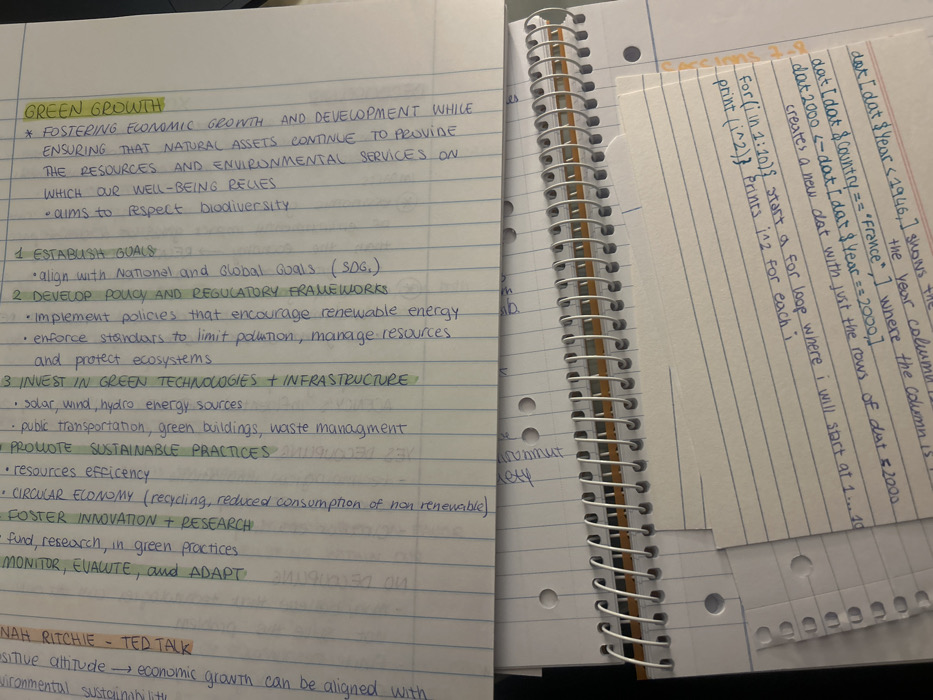 GREEN GROWTH
* FOSTERING ECONOMIC GROWTH AND DEVELOPMENT WHILE
ENSURING THAT NATURAL ASSETS CONTINUE TO PROVIDE
THE RESOURCES AND ENVIRONMENTAL SERVICES ON
WHICH OUR WELL-BEING RELIES
• aims to respect biodiversity
1 ESTABLISH GOALS
• align with National and Global Goals (SDG,)
2 DEVELOP POLICY AND REGULATORY FRAMEWORKS
• implement policies that encourage renewable energy
• enforce standars to limit pollution, manage resources
and protect ecosystems
3 INVEST IN GREEN TECHNOLOGIES + INFRASTRUCTURE
• solar, wind, hydro energy sources
• public transportation, green buildings, waste managment
PROMOTE SUSTAINABLE PRACTICES
• resources efficency
• CIRCULAR ECONOMY (recycling, reduced consumption of non renewable)
FOSTER INNOVATION + RESEARCH
• fund, research, in green practices
MONITOR, EVALUTE, and ADAPT
NAH RITCHIE - TED TALK
sitive attitude → economic growth can be aligned with
vironmental sustainability
dat[dat$Year<1946,] shows the
the year column
dat[dat$Country=="France",] where the column is
dat2000 <- dat[dat$Year==2000,]
creates a new dat with just the rows of dat 2000
for(i in 1:10){ start a for loop where i will start at 1...10
print(i^2)} prints i^2 for each i